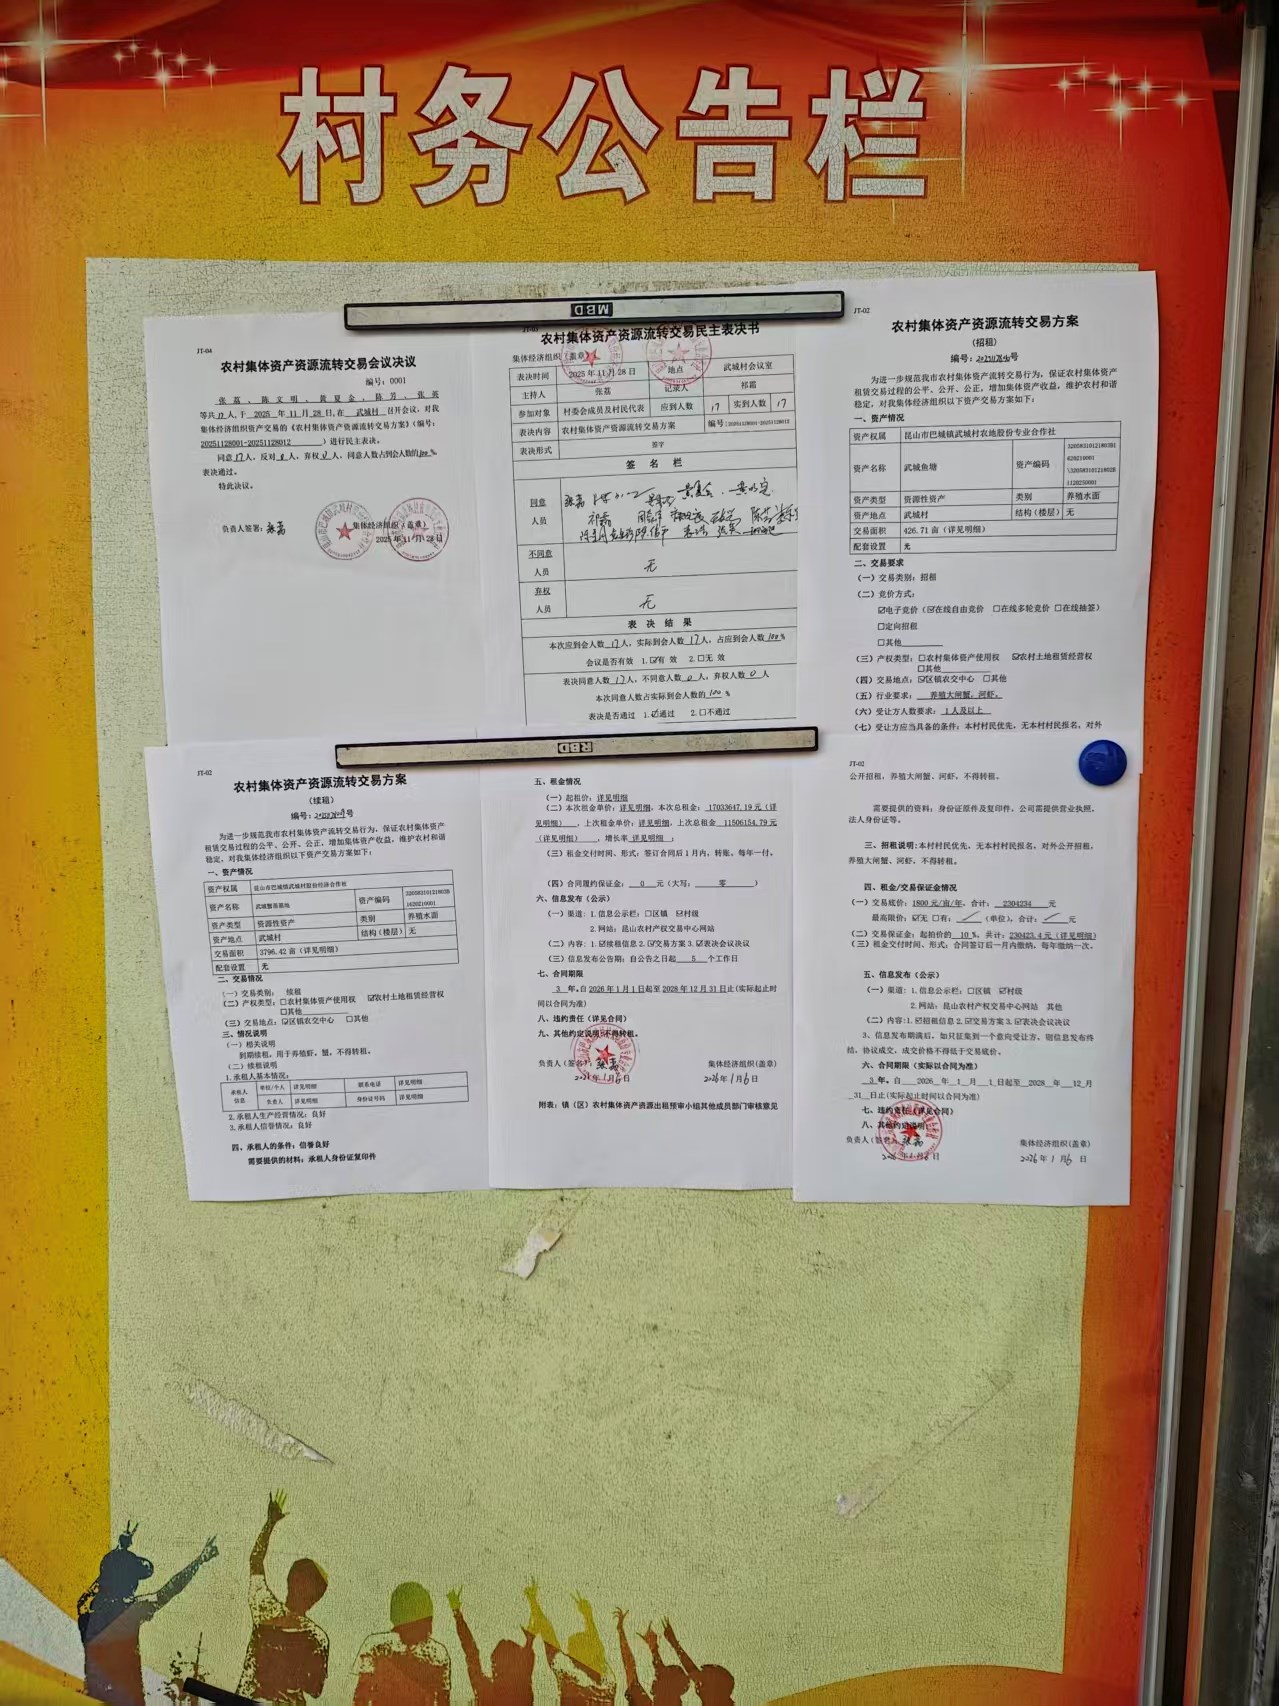 村务公告栏
MBD
JT-04
农村集体资产资源流转交易会议决议
编号：0001
张荔、陈文明、黄夏金、陈芳、张英
等共17人，于 2025 年 11 月 28 日，在 武城村 召开会议，对我
集体经济组织资产交易的《农村集体资产资源流转交易方案》（编号：
20251128001-20251128012）进行民主表决。
同意17人，反对0人，弃权0人，同意人数占到会人数的100%
表决通过。
特此决议。
负责人签名：张荔
集体经济组织（盖章）
2025 年 11 月 28 日
JT-03
农村集体资产资源流转交易民主表决书
集体经济组织（盖章）
表决时间 2025 年 11 月 28 日 地点 武城村会议室
主持人 张荔 记录人 祁霜
参加对象 村委会成员及村民代表 应到人数 17 实到人数 17
表决内容 农村集体资产资源流转交易方案 编号：20251128001-20251128012
表决形式 签字
签 名 栏
同意
人员
张荔
不同意
人员
无
弃权
人员
无
表 决 结 果
本次应到会人数 17 人，实际到会人数 17 人，占应到会人数 100 %
会议是否有效 1.☑有 效 2.□无 效
表决同意人数 17 人，不同意人数 0 人，弃权人数 0 人
本次同意人数占实际到会人数的 100 %
表决是否通过 1.☑通过 2.□不通过
JT-02
农村集体资产资源流转交易方案
（招租）
编号：号
为进一步规范我市农村集体资产流转交易行为，保证农村集体资产
租赁交易过程的公平、公开、公正，增加集体资产收益，维护农村和谐
稳定，对我集体经济组织以下资产交易方案如下：
一、资产情况
资产权属 昆山市巴城镇武城村农地股份专业合作社
资产名称 武城鱼塘 资产编码
资产类型 资源性资产 类别 养殖水面
资产地点 武城村 结构（楼层） 无
交易面积 426.71 亩（详见明细）
配套设置 无
二、交易要求
（一）交易类别：招租
（二）竞价方式：
☑电子竞价（☑在线自由竞价 □在线多轮竞价 □在线抽签）
□定向招租
□其他
（三）产权类型：□农村集体资产使用权 ☑农村土地租赁经营权
□其他
（四）交易地点：☑区镇农交中心 □其他
（五）行业要求： 养殖大闸蟹、河虾。
（六）受让方人数要求： 1 人及以上
（七）受让方应当具备的条件：本村村民优先，无本村村民报名，对外
RBD
JT-02
农村集体资产资源流转交易方案
（续租）
编号：号
为进一步规范我市农村集体资产流转交易行为，保证农村集体资产
租赁交易过程的公平、公开、公正，增加集体资产收益，维护农村和谐
稳定，对我集体经济组织以下资产交易方案如下：
一、资产情况
资产权属 昆山市巴城镇武城村股份经济合作社
资产名称 武城蟹苗基地 资产编码
资产类型 资源性资产 类别 养殖水面
资产地点 武城村 结构（楼层） 无
交易面积 3796.42 亩（详见明细）
配套设置 无
二、交易情况
（一）交易类别： 续租
（二）产权类型：□农村集体资产使用权 ☑农村土地租赁经营权
□其他
（三）交易地点：☑区镇农交中心 □其他
三、情况说明
（一）相关说明
到期续租，用于养殖虾、蟹，不得转租。
（二）续租说明
1.承租人基本情况：
承租人
信息
单位/个人 详见明细 联系电话 详见明细
负责人 详见明细 身份证号码 详见明细
2.承租人生产经营情况：良好
3.承租人信誉情况：良好
四、承租人的条件：信誉良好
需要提供的材料：承租人身份证复印件
五、租金情况
（一）起租价：详见明细
（二）本次租金单价：详见明细，本次总租金： 17033647.19 元（详
见明细） ，上次租金单价：详见明细，上次总租金 11506154.79 元
（详见明细） ，增长率 详见明细 ；
（三）租金交付时间、形式：签订合同后 1 月内，转账，每年一付。
（四）合同履约保证金： 0 元（大写： 零 ）
六、信息发布（公示）
（一）渠道：1.信息公示栏：□区镇 ☑村级
2.网站：昆山农村产权交易中心网站
（二）内容：1.☑续租信息 2.☑交易方案 3.☑表决会议决议
（三）信息发布公告期：自公告之日起 5 个工作日
七、合同期限
3 年。自 2026 年 1 月 1 日起至 2028 年 12 月 31 日止(实际起止时
间以合同为准)
八、违约责任（详见合同）
九、其他约定说明：不得转租。
负责人（签名）：张荔
集体经济组织(盖章)
2026年1月6日
2026年1月6日
附表：镇（区）农村集体资产资源出租预审小组其他成员部门审核意见
JT-02
公开招租，养殖大闸蟹、河虾，不得转租。
需要提供的资料：身份证原件及复印件，公司需提供营业执照、
法人身份证等。
三、招租说明：本村村民优先，无本村村民报名，对外公开招租，
养殖大闸蟹、河虾，不得转租。
四、租金/交易保证金情况
（一）交易底价：1800 元/亩/年，合计： 2304234 元
最高限价：☑无 □有： （单位），合计： 元
（二）交易保证金：起拍价的 10 %，共计：230423.4 元（详见明细）
（三）租金交付时间、形式：合同签订后一月内缴纳，每年缴纳一次。
五、信息发布（公示）
（一）渠道：1.信息公示栏：□区镇 ☑村级
2.网站：昆山农村产权交易中心网站 其他
（二）内容：1.☑招租信息 2.☑交易方案 3.☑表决会议决议
3、信息发布期满后，如只征集到一个意向受让方，则信息发布终
结，协议成交，成交价格不得低于交易底价。
六、合同期限（实际以合同为准）
3 年。自 2026 年 1 月 1 日起至 2028 年 12 月
31 日止(实际起止时间以合同为准)
七、违约责任（详见合同）
八、其他约定说明：
负责人（签名）：张荔
集体经济组织(盖章)
2026年1月6日
2026年1月6日